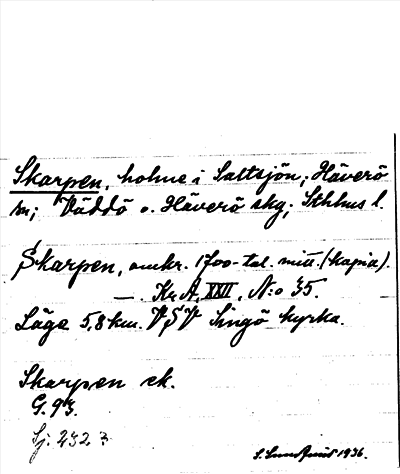 Skarpen, holme i Saltsjön; Häverö
sn; Väddö o. Häverö skg; Sthlms l.
Skarpen, omkr. 1700-tal. mitt. (kopia).
— . Kr. A. XXII, N:o 35.
Läge 5,8 km. VSV Singö kyrka.
Skarpen ek.
G. 93.
Sj. 232 3
S. Lundqvist 1936.